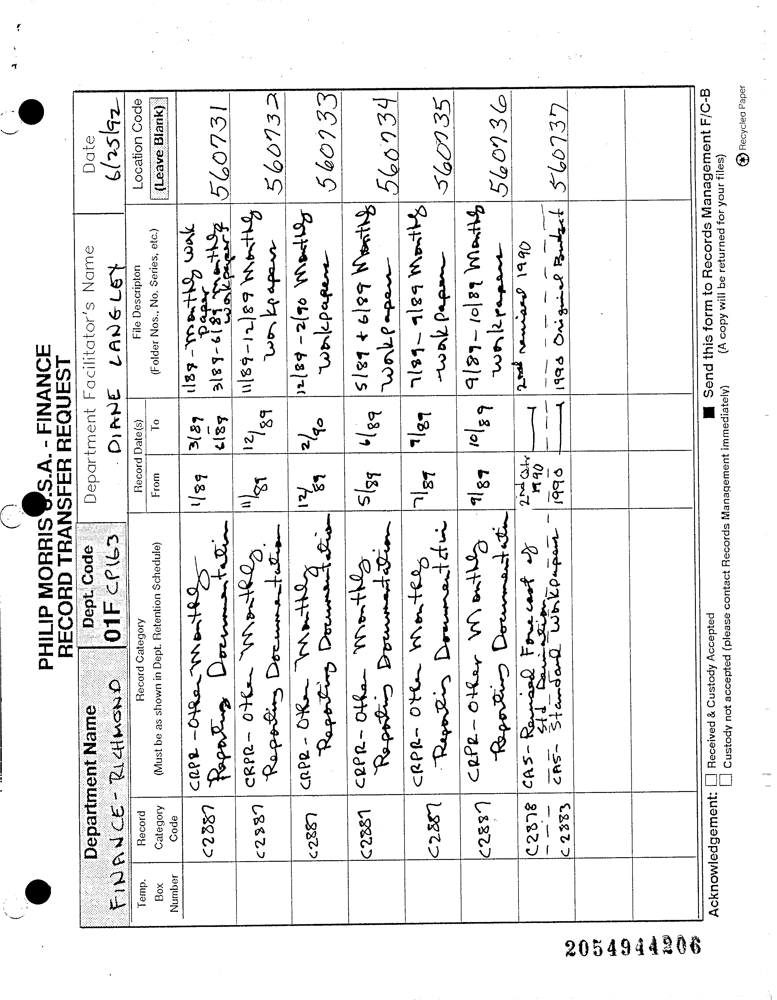 PHILIP MORRIS U.S.A. - FINANCE
RECORD TRANSFER REQUEST
Department Name
FINANCE - RICHMOND
Dept. Code
01F CP163
Department Facilitator's Name
DIANE LANGLEY
Date
6/25/92
Temp. Box Number
Record Category Code
Record Category
(Must be as shown in Dept. Retention Schedule)
Record Date(s)
From
To
File Descripton
(Folder Nos., No. Series, etc.)
Location Code
(Leave Blank)
C2887 CRPR - Other Monthly Reporting Documentation 1/89 3/89 6/89 1/89 - Monthly Work Paper 3/89-6/89 Monthly workpapers 560731
C2887 CRPR - Other Monthly Reporting Documentation 11/89 12/89 11/89-12/89 Monthly workpapers 560732
C2887 CRPR - Other Monthly Reporting Documentation 12/89 2/90 12/89 - 2/90 Monthly workpapers 560733
C2887 CRPR - Other Monthly Reporting Documentation 5/89 6/89 5/89 + 6/89 Monthly workpapers 560734
C2887 CRPR - Other Monthly Reporting Documentation 7/89 9/89 7/89 - 9/89 Monthly workpapers 560735
C2887 CRPR - Other Monthly Reporting Documentation 9/89 10/89 9/89 - 10/89 Monthly workpapers 560736
C2878 CAS - Revised Forecast of Std Deviation 2nd Qtr 1990 2nd revised 1990
C2883 CAS - Standard Workpapers 1990 1990 Original Budget 560737
Acknowledgement:
Received & Custody Accepted
Custody not accepted (please contact Records Management immediately)
Send this form to Records Management F/C-B
(A copy will be returned for your files)
Recycled Paper
2054944206